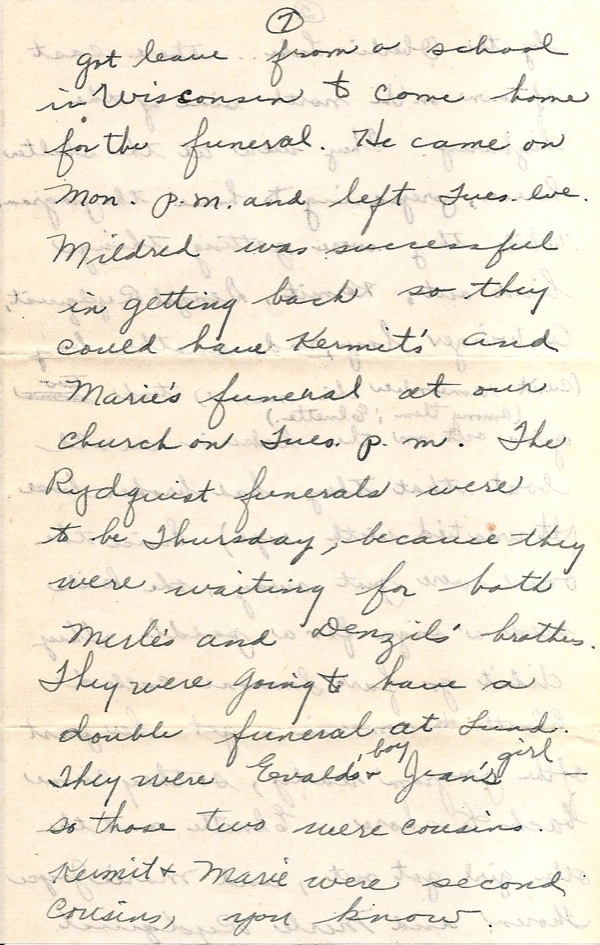 7
got leave from a school
in Wisconsin to come home
for the funeral. He came on
Mon. p.m. and left Tues. eve.
Mildred was successful
in getting back so they
could have Kermit's and
Marie's funeral at our
church on Tues. p.m. The
Rydquist funerals were
to be Thursday, because they
were waiting for both
Merle's and Denzil's brothers.
They were going to have a
double funeral at Lund.
They were Evald's boy & Jean's girl —
so those two were cousins.
Kermit & Marie were second
cousins, you know.